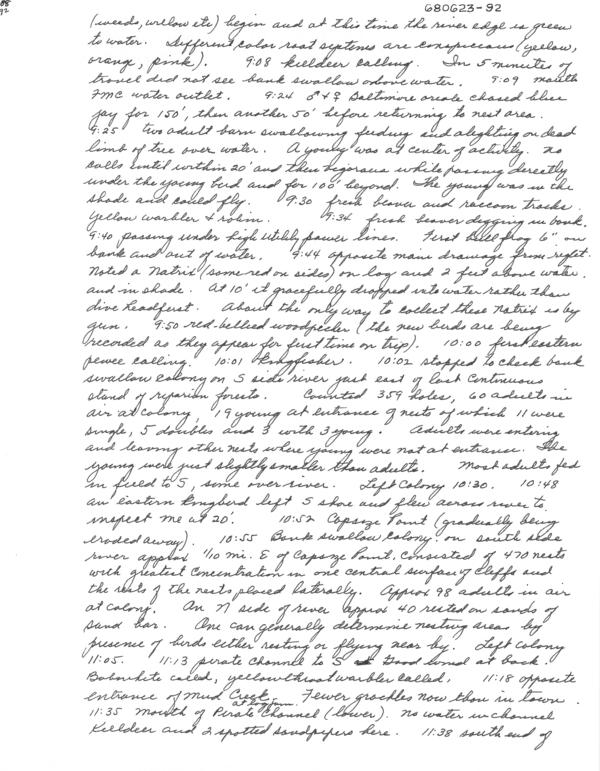 680623-92
(weeds, willow etc) begin and at this time the river edge is green
to water. Different color root systems are conspicuous (yellow,
orange, pink). 9:08 killdeer calling. In 5 minutes of
travel did not see bank swallow above water. 9:09 mouth
FMC water outlet. 9:24 ♂ & ♀ Baltimore oriole chased blue
jay for 150', then another 50' before returning to nest area.
9:25 two adult barn swallowing feeding and alighting on dead
limb of tree over water. A young was at center of activity. no
calls until within 20' and then vigorous while passing directly
under the young bird and for 100' beyond. The young was in the
shade and could fly. 9:30 fresh beaver and raccoon tracks.
Yellow warbler & robin. 9:34 fresh beaver digging in bank.
9:40 passing under high utility power lines. First bullfrog 6" on
bank and out of water. 9:44 opposite main drainage from right.
Noted a Natrix (some red on sides) on log and 2 feet above water
and in shade. At 10' it gracefully dropped into water rather than
dive headfirst. About the only way to collect these Natrix is by
gun. 9:50 red-bellied woodpecker (the new birds are being
recorded as they appear for first time on trip). 10:00 first eastern
pewee calling. 10:01 kingfisher. 10:02 stopped to check bank
swallow colony on S side river just east of last continuous
stand of riparian forests. Counted 359 holes, 60 adults in
air at colony, 19 young at entrance of nests of which 11 were
single, 5 doubles and 3 with 3 young. Adults were entering
and leaving other nests where young were not at entrance. The
young were just slightly smaller than adults. Most adults fed
in field to S, some over river. Left Colony 10:30. 10:48
an eastern kingbird left S shoe and flew across river to
inspect me at 20'. 10:52 Capsize Point (gradually being
eroded away). 10:55 Bank swallow colony on south side
river approx 1/10 mi. E of Capsize Point, consisted of 470 nests
with greatest concentration in one central surface of cliffs and
the rest of the nests placed laterally. Approx 98 adults in air
at colony. On N side of river approx 40 rested on sands of
sand bar. One can generally determine nesting areas by
presence of birds either resting or flying near by. Left colony
11:05. 11:13 pirate channel to S at back.
Bobwhite called, yellowthroat warbler called, 11:18 opposite
entrance of Mud Creek at logjam. Fewer grackles now than in town.
11:35 mouth of Pirate Channel (lower). No water in channel
Killdeer and 2 spotted sandpipers here. 11:38 south end of